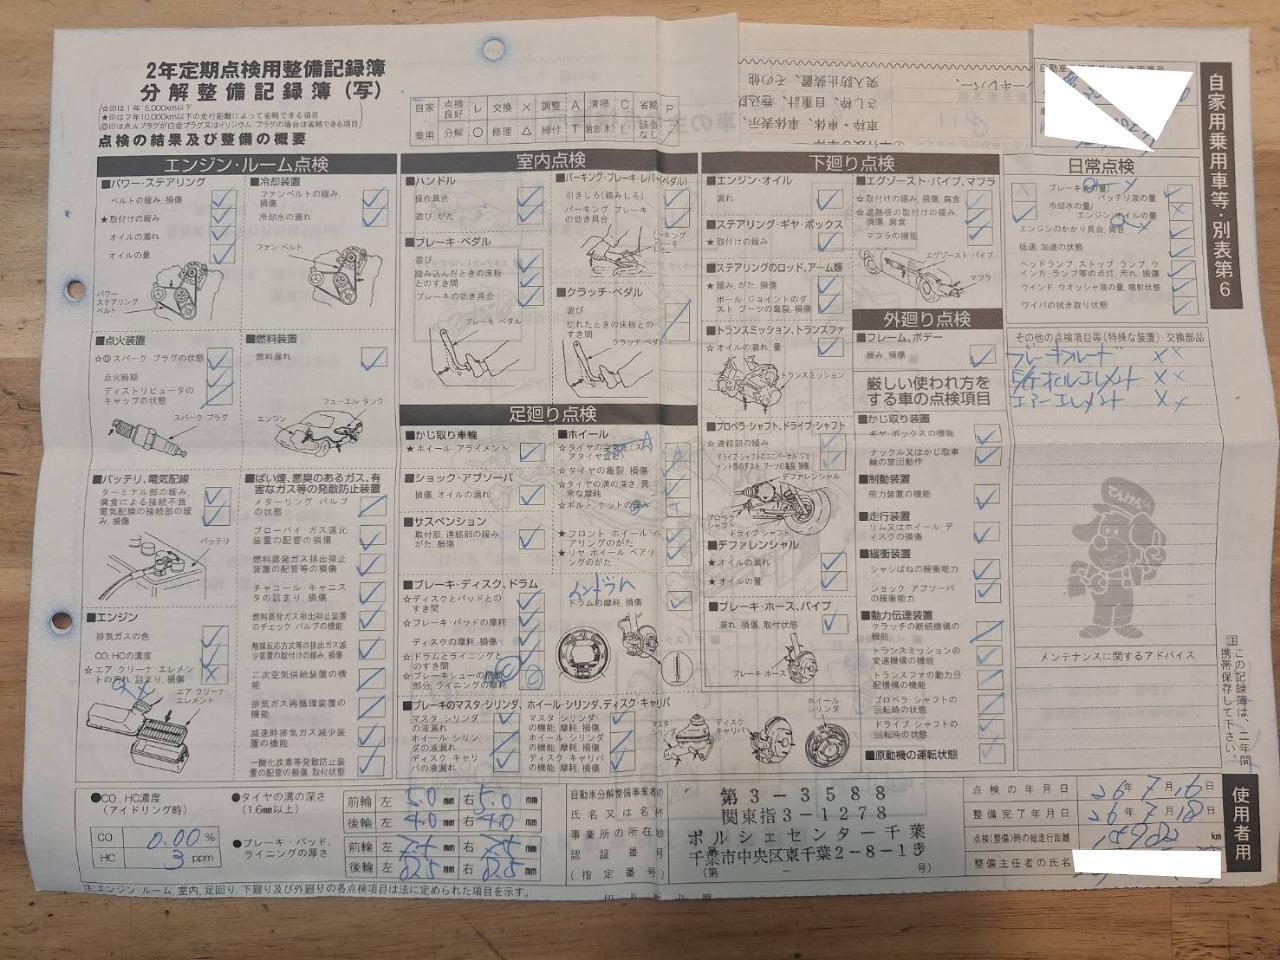 2年定期点検用整備記録簿
分解整備記録簿(写)
☆印は1年 5,000km以下
★印は2年10,000km以下の走行距離によって省略できる項目
◎印は点火プラグが白金プラグ又はイリジウム・プラグの場合は省略できる項目
点検の結果及び整備の概要
自家 点検良好 レ 交換 X 調整 A 清掃 C 省略 P
乗用 分解 ○ 修理 △ 締付 T 給油(水) L 該当なし /
自家用乗用車等・別表第6
エンジン・ルーム点検
■パワー・ステアリング
ベルトの緩み、損傷
★取付けの緩み
オイルの漏れ
オイルの量
パワーステアリングベルト
■冷却装置
ファンベルトの緩み、損傷
冷却水の漏れ
ファン・ベルト
■点火装置
☆◎スパーク プラグの状態
点火時期
ディストリビュータのキャップの状態
スパーク・プラグ
■燃料装置
燃料漏れ
フューエル タンク
エンジン
■バッテリ、電気配線
ターミナル部の緩み、腐食による接続不良
電気配線の接続部の緩み、損傷
バッテリ
■ばい煙、悪臭のあるガス、有害なガス等の発散防止装置
メターリング・バルブの状態
ブローバイ・ガス還元装置の配管の損傷
燃料蒸発ガス排出抑止装置の配管等の損傷
チャコール・キャニスタの詰まり、損傷
燃料蒸発ガス排出抑止装置のチェック・バルブの機能
触媒反応方式等の排出ガス減少装置の取付けの緩み、損傷
二次空気供給装置の機能
排気ガス再循環装置の機能
減速時排気ガス減少装置の機能
一酸化炭素等発散防止装置の配管の損傷、取付状態
■エンジン
排気ガスの色
CO、HCの濃度
☆エア クリーナ エレメントの汚れ、詰まり、損傷
エア・クリーナ エレメント
室内点検
■ハンドル
操作具合
遊び がた
■ブレーキ・ペダル
遊び
踏み込んだときの床板とのすき間
ブレーキの効き具合
ブレーキ ペダル
■パーキング・ブレーキ・レバー(ペダル)
引きしろ(踏みしろ)
パーキング ブレーキの効き具合
パーキング ブレーキ
■クラッチ・ペダル
遊び
切れたときの床板とのすき間
クラッチ ペダル
足廻り点検
■かじ取り車輪
★ホイール アライメント
■ショック・アブソーバ
損傷、オイルの漏れ
■サスペンション
取付部、連結部の緩み、がた、損傷
■ホイール
☆タイヤの亀裂、損傷
☆タイヤの溝の深さ、異常な摩耗
☆ボルト ナットの緩み
★フロント ホイール ベアリングのがた
★リヤ ホイール ベアリングのがた
■ブレーキ・ディスク、ドラム
☆ディスクとパッドとのすき間
☆ブレーキ・パッドの摩耗
ディスクの摩耗、損傷
☆ドラムとライニングとのすき間
インドラム
ドラムの摩耗、損傷
■ブレーキのマスタ・シリンダ、ホイール・シリンダ、ディスク・キャリパ
マスタ シリンダの液漏れ
ホイール シリンダの液漏れ
ディスク キャリパの液漏れ
マスタ シリンダの機能、摩耗、損傷
ホイール シリンダの機能、摩耗、損傷
ディスク キャリパの機能、摩耗、損傷
マスタシリンダ
ディスクキャリパ
ホイールシリンダ
下廻り点検
■エンジン・オイル
漏れ
■ステアリング・ギヤ・ボックス
★取付けの緩み
■ステアリングのロッド、アーム類
★緩み、がた、損傷
ボール ジョイントのダスト ブーツの亀裂、損傷
■トランスミッション、トランスファ
☆オイルの漏れ 量
トランスミッション
■プロペラ・シャフト、ドライブ・シャフト
☆連結部の緩み
ドライブ シャフトのユニバーサル ジョイント部のダスト ブーツの亀裂、損傷
デファレンシャル
プロペラ シャフト
ドライブ シャフト
■デファレンシャル
★オイルの漏れ
★オイルの量
■ブレーキ・ホース、パイプ
漏れ、損傷、取付状態
ブレーキ ホース
■エグゾースト・パイプ、マフラ
☆取付けの緩み、損傷、腐食
☆遮熱板の取付けの緩み、損傷、腐食
マフラの機能
エグゾースト・パイプ
マフラ
外廻り点検
■フレーム、ボデー
緩み、損傷
厳しい使われ方をする車の点検項目
■かじ取り装置
ギヤ・ボックスの機能
ナックル又はかじ取車輪の旋回動作
■制動装置
倍力装置の機能
■走行装置
リム又はホイール ディスクの損傷
■緩衝装置
シャシばねの緩衝能力
ショック アブソーバの緩衝能力
■動力伝達装置
クラッチの断続機構の機能
トランスミッションの変速機構の機能
トランスファの動力分配機構の機能
プロペラ シャフトの回転時の状態
ドライブ シャフトの回転時の状態
■原動機の運転状態
日常点検
バッテリ液の量
冷却水の量
エンジン オイルの量
エンジンのかかり具合、異音
低速、加速の状態
ヘッドランプ、ストップ ランプ、ウインカ ランプ等の点灯、汚れ、損傷
ウインド ウオッシャ液の量、噴射状態
ワイパの拭き取り状態
その他の点検項目等(特殊な装置) 交換部品
ブレーキフルード X X
エアーエレメント X X
てんけんくん
メンテナンスに関するアドバイス
注 この記録簿は、二年間携帯保存して下さい。
●CO、HC濃度
(アイドリング時)
CO 0.00 %
HC 3 ppm
●タイヤの溝の深さ
(1.6㎜以上)
前輪 左 5.0 ㎜ 右 5.0 ㎜
後輪 左 4.0 ㎜ 右 4.0 ㎜
●ブレーキ・パッド、ライニングの厚さ
前輪 左 ㎜ 右 ㎜
後輪 左 ㎜ 右 ㎜
自動車分解整備事業者の
氏名又は名称
事業所の所在地
認証番号
(指定番号)
第3-3588
関東指3-1278
ポルシェセンター千葉
千葉市中央区東千葉2-8-13
点検の年月日 26年 7月 16日
整備完了年月日 26年 7月 18日
点検(整備)時の総走行距離 km
整備主任者の氏名
使用者用
注.エンジン・ルーム、室内、足廻り、下廻り及び外廻りの各点検項目は法に定められた項目を示す。